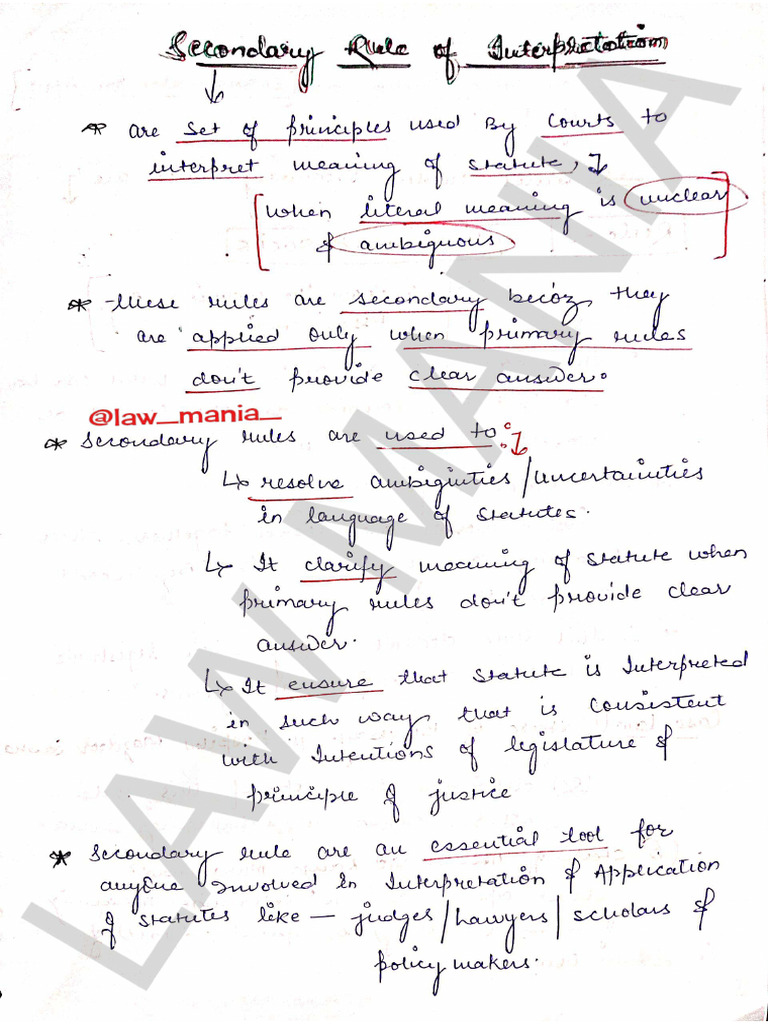 Secondary Rule of Interpretation
are set of principles used By courts to
interpret meaning of statute,
when literal meaning is unclear
& ambiguous
these rules are secondary becoz, they
are applied only when primary rules
don't provide clear answer.
@law_mania_
secondary rules are used to:
↳ resolve ambiginties/uncertainities
in language of statutes.
↳ It clarify meaning of statute when
primary rules don't provide clear
answer.
↳ It ensure that statute is Interpreted
in such way that is consistent
with Intentions of legislature &
principle of justice
secondary rule are an essential tool for
anyone Involved In Interpretation & Application
of statutes like — judges/Lawyers/scholars &
policy makers.
LAW MANIA